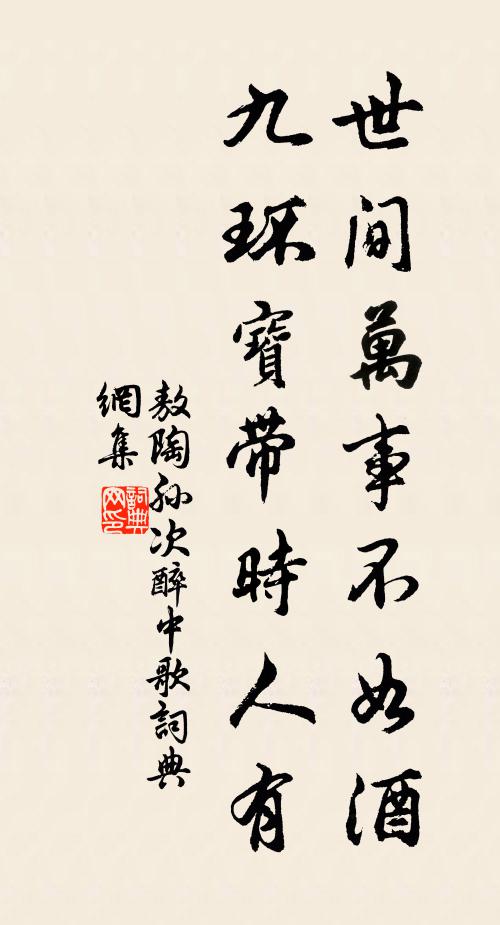 世間萬事不如酒
九环寶带時人有
敖陶孙次醉中歌詞典
網集
詞典
网印